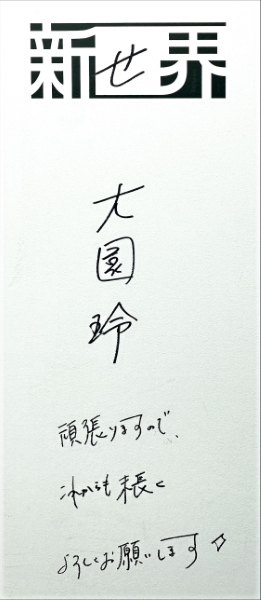 新せ界
大園
玲
頑張りますので、
これからも末長く
よろしくお願いします☆